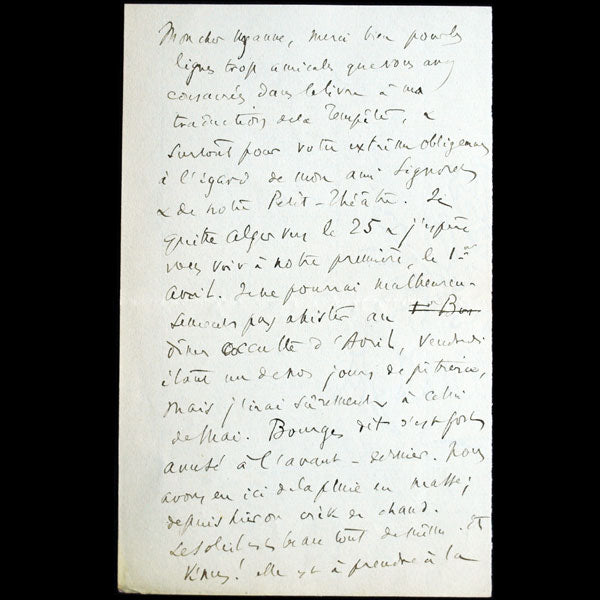 Mon cher Uzanne, merci bien pour les
lignes trop amicales que vous avez
consacrées dans le livre à ma
traduction de la Tempête, &
surtout pour votre extrême obligeance
à l'égard de mon ami Signoret
& de notre Petit-Théâtre. Je
quitte Alger vers le 25 & j'espère
vous voir à notre première, le 1er
Avril. Je ne pourrai malheureu-
sement pas assister au
dîner occulte d'Avril, vendredi
étant un de nos jours de
mais j'irai sûrement à celui
de Mai. Bourges dit s'est fort
amusé à l'avant-dernier. Nous
avons eu ici de la pluie en masse;
depuis hier on crève de chaud.
Le soleil est beau tout de même. Et
Vénus! elle est à prendre à la